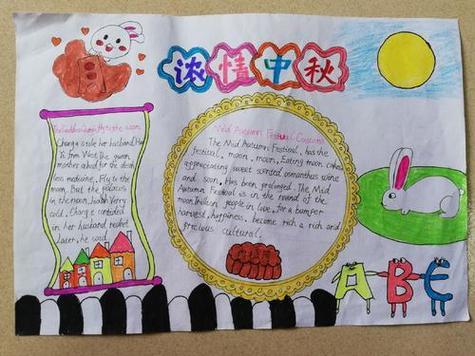 浓情中秋
Mid Autumn Festival Customs
The Mid Autumn Festival, has the
festival, moon, moon, Eating moon cakes
appreciating sweet scented osmanthus wine
and soon, Has been prolonged. The Mid
Autumn Festival is in the round of the
moon in people in love, for a bumper
harvest, happiness. become rich a rich and
precious cultural.
Chang'e stole her husband Hou
Yi from West The queen
mother asked for the
less medicine, Fly to the
moon, But the palaces
in the moon, too Very
cold, Chang'e confided
in her husband
later, he said
ABC